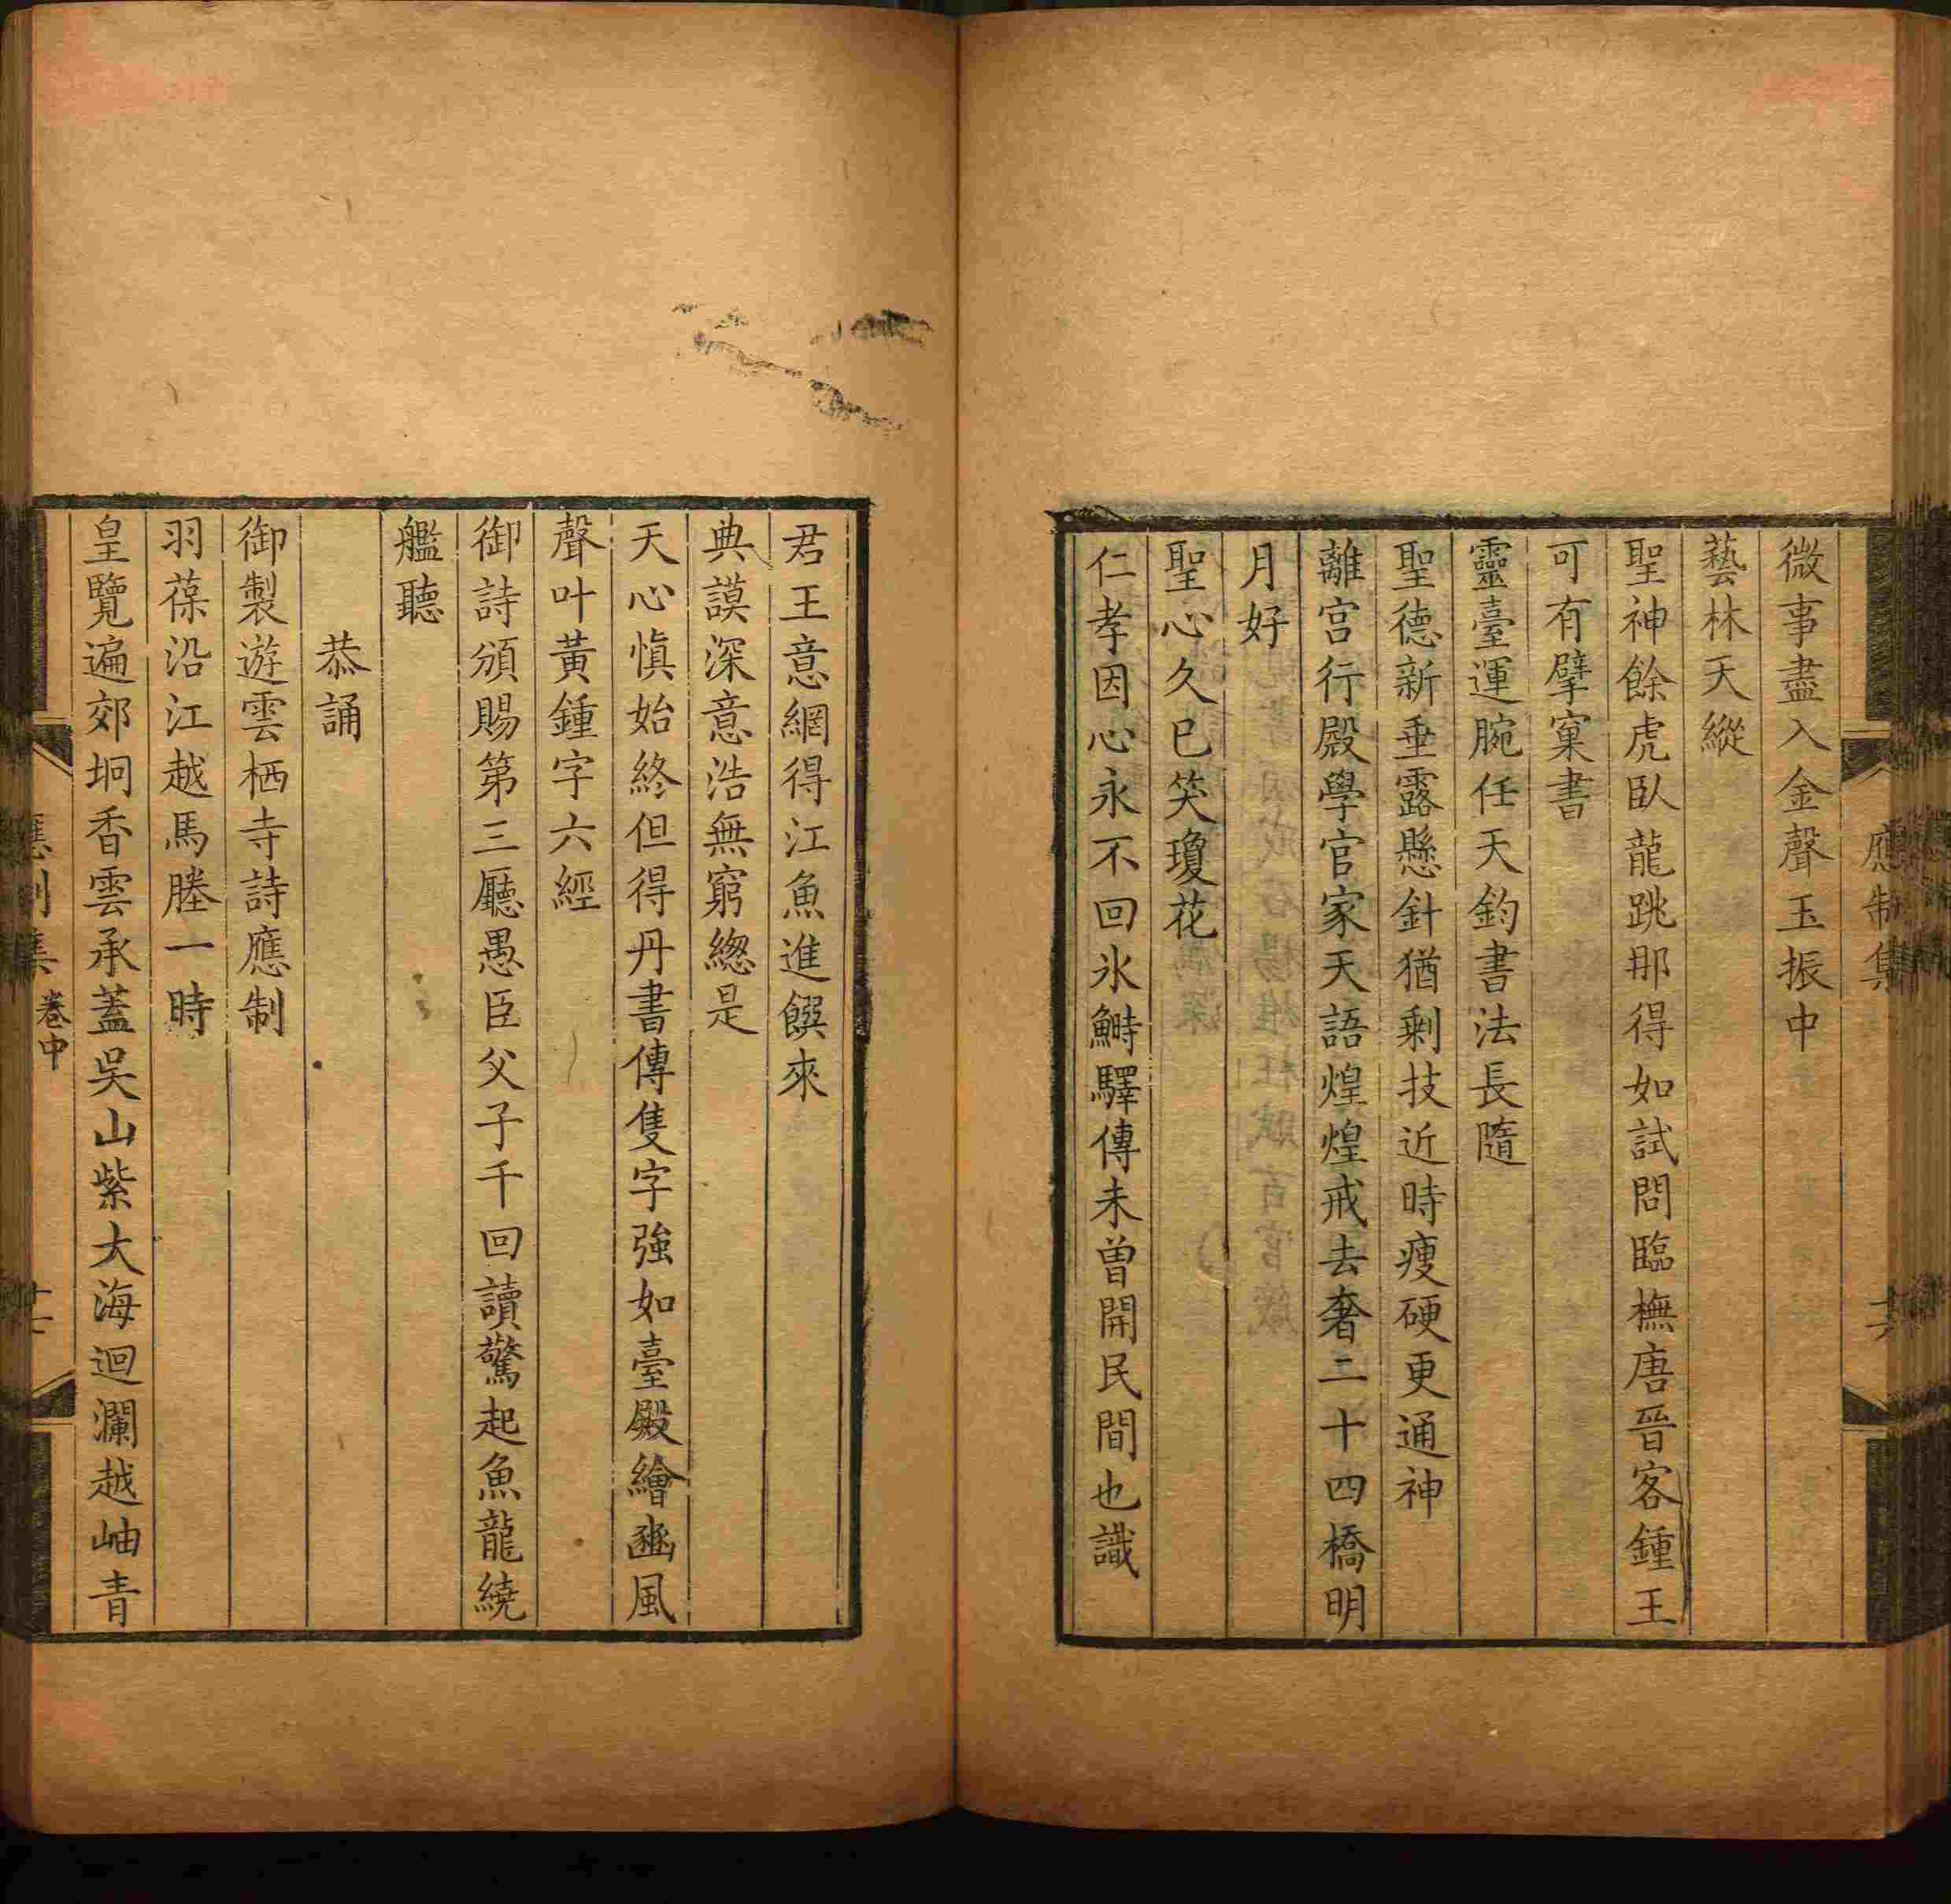 應制集
微事盡入金聲玉振中
藝林天縱
聖神餘虎臥龍跳那得如試問臨橅唐晉客鍾王
可有擘窠書
靈臺運腕任天鈞書法長隨
聖德新垂露懸針猶剩技近時瘦硬更通神
離宮行殿學官家天語煌煌戒去奢二十四橋明
月好
聖心久已笑瓊花
仁孝因心永不回氷鰣驛傳未曾開民間也識
君王意網得江魚進饌來
典謨深意浩無窮緫是
天心愼始終但得丹書傳隻字強如臺殿繪豳風
聲叶黃鍾字六經
御詩頒賜第三廳愚臣父子千回讀驚起魚龍繞
艦聽
恭誦
御製遊雲栖寺詩應制
羽葆沿江越馬塍一時
皇覽遍郊坰香雲承蓋吳山紫大海迴瀾越岫青
應制集
卷中